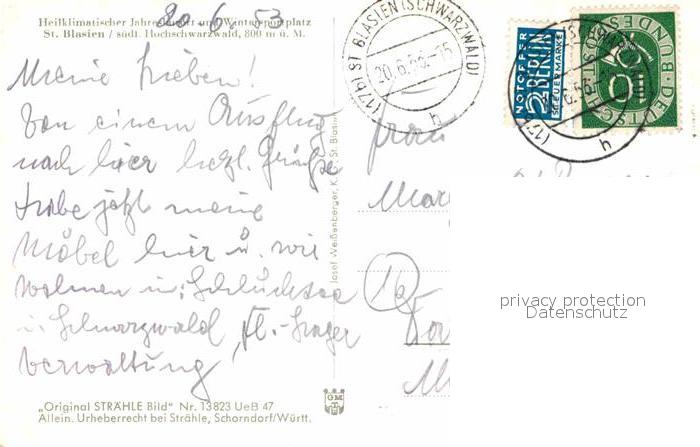 20.6.53
Heilklimatischer Jahreskurort und Wintersportplatz
St. Blasien / südl. Hochschwarzwald, 800 m ü. M.
Meine Lieben!
Von einem Ausflug
nach hier herzl. Grüße
Habe jetzt meine
Möbel hier u. wir
wohnen in Schluchsee
i. Schwarzwald,
verwaltung
Josef Weißenberger, St. Blasien
„Original STRÄHLE Bild" Nr. 13823 UeB 47
Allein. Urheberrecht bei Strähle, Schorndorf/Württ.
(17b) ST BLASIEN (SCHWARZWALD)
20.6.53.-15
h
NOTOPFER
2 BERLIN
STEUERMARKE
10
DEUTSCHE BUNDESPOST
h
Frau
privacy protection
Datenschutz